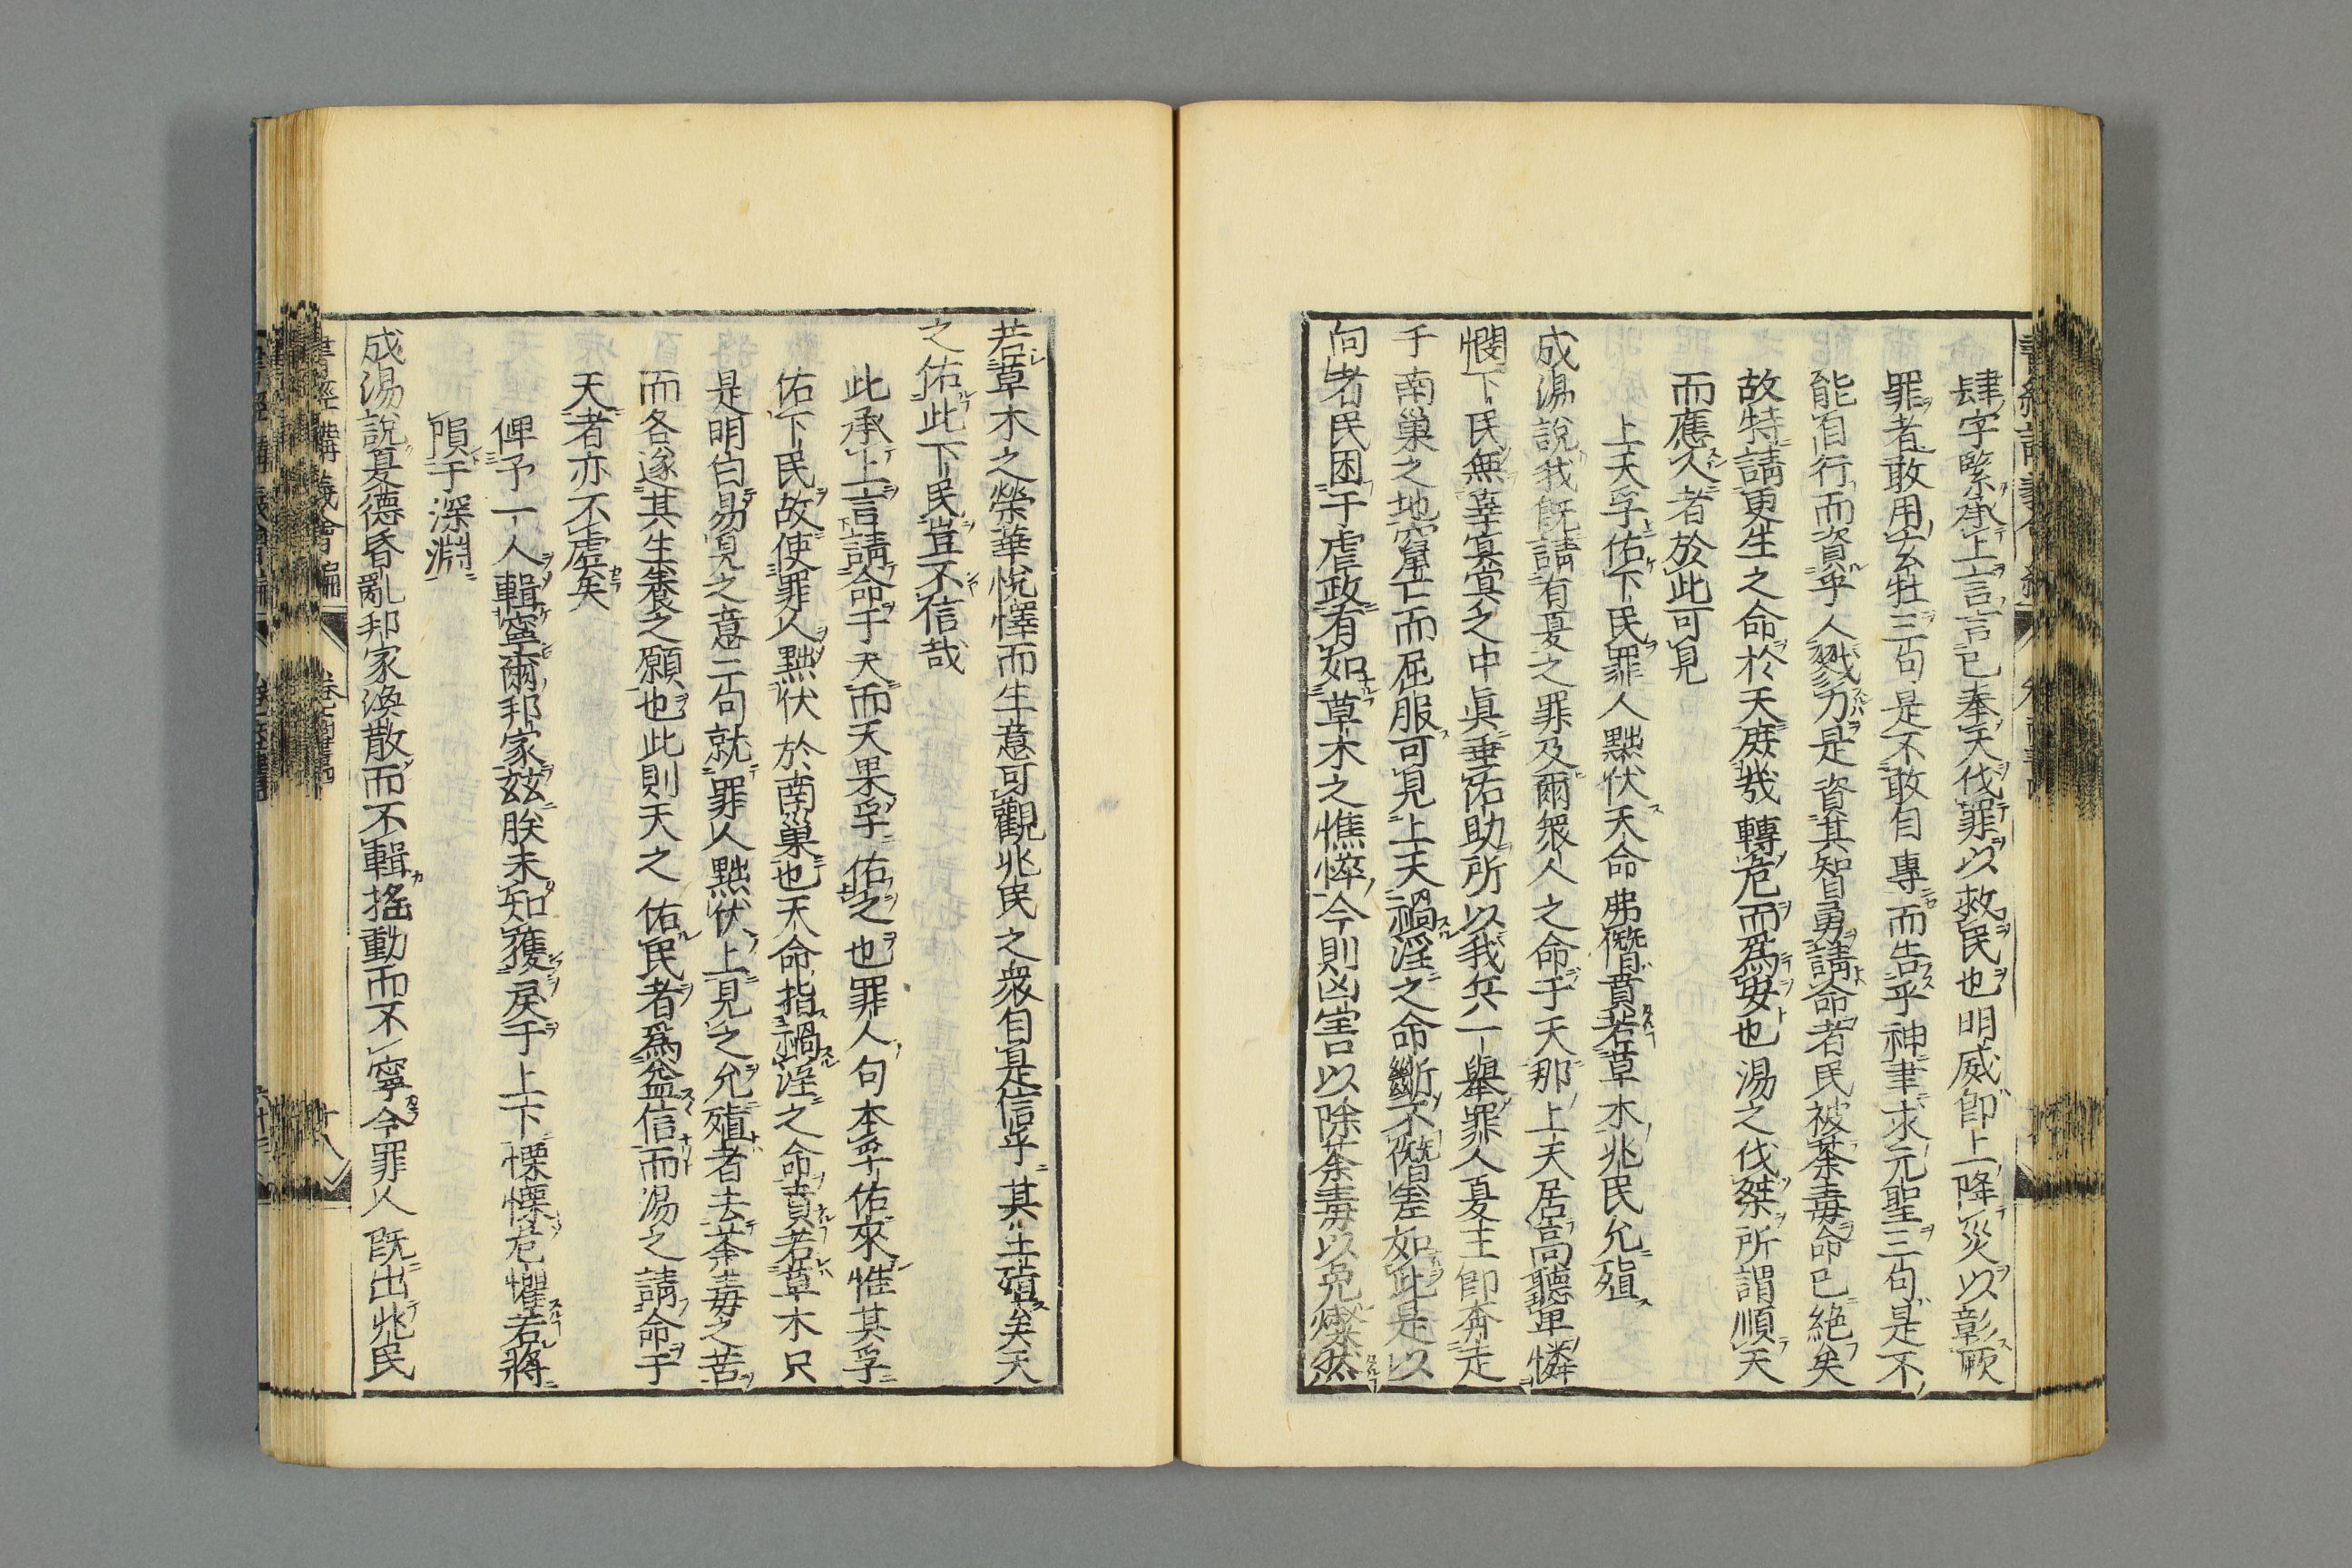 肆字緊承上言言已奉天伐罪以救民也明威卽上降災以彰厥
罪者敢用玄牡三句是不敢自專而告乎神聿求元聖三句是不
能自行而資乎人戮力是資其智勇請命者民被荼毒命已絶矣
故特請更生之命於天庶幾轉危而爲安也湯之伐桀所謂順天
而應人者於此可見
上天孚佑下民罪人黜伏天命弗僭賁若草木兆民允殖
成湯說我既請有夏之罪及爾衆人之命于天那上天居高聽卑憐
憫下民無辜寘寘之中眞垂佑助所以我兵一舉罪人夏王卽奔走
于南巢之地竄亡而屈服可見上天禍淫之命斷不僭差如此是以
向者民困于虐政有如草木之憔悴今則凶害以除荼毒以免燦然
若草木之榮華悅懌而生意可觀兆民之衆自是信乎其生殖矣天
之佑此下民豈不信哉
此承上言請命于天而天果孚佑之也罪人句本孚佑來惟其孚
佑下民故使罪人黜伏於南巢也天命指禍淫之命賁若草木只
是明白易見之意二句就罪人黜伏上見之允殖者去荼毒之苦
而各遂其生養之願也此則天之佑民者爲益信而湯之請命于
天者亦不虛矣
俾予一人輯寧爾邦家玆朕未知獲戾于上下慄慄危懼若將
隕于深淵
成湯說夏德昏亂邦家渙散而不輯搖動而不寧今罪人既出兆民
書經講義會編 卷七商書 十八